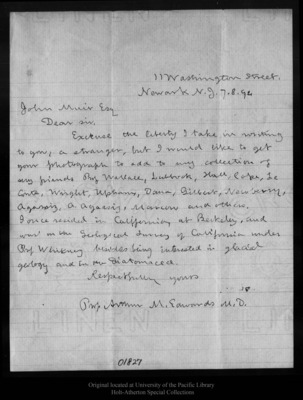 11 Washington Street.
Newark N. J. 7.8.92
John Muir Esq
Dear sir.
Excuse the liberty I take, in writing
to you, a stranger, but I would like to get
your photograph to add to my collection of
my friends Prof Wallace, Lubbock, Hall, Cope, Le
Conte, Wright, Upham, Dana, Gilbert, Newberry,
Agassiz, A Agassiz, Marcou and others.
I once resided in California at Berkeley, and
was on the Geological Survey of California under
Prof Whitney besides being interested in glacial
geology and in Diatomacea.
Respectfully yours
Prof Arthur M. Edwards M. D.
01827
Original located at University of the Pacific Library
Holt-Atherton Special Collections